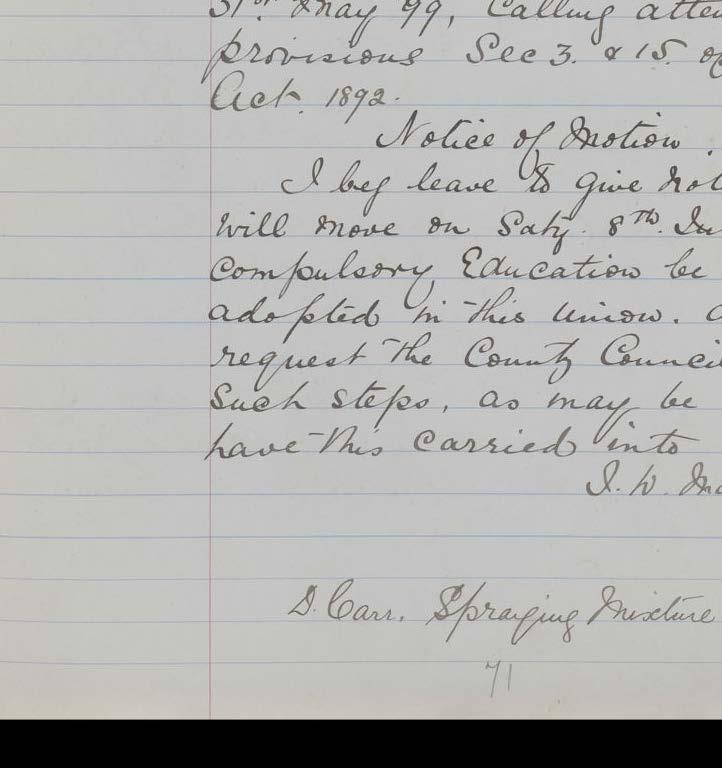 31st May 99, Calling atte
provisions Sec 3. & 15. of
Act. 1892.
Notice of Motion.
I beg leave to give not
will move on Saty. 8th. In
Compulsory Education be
adopted in this Union.
request the County Counci
such steps, as may be
have this carried into
D. Carr. Spraying Mixture
71